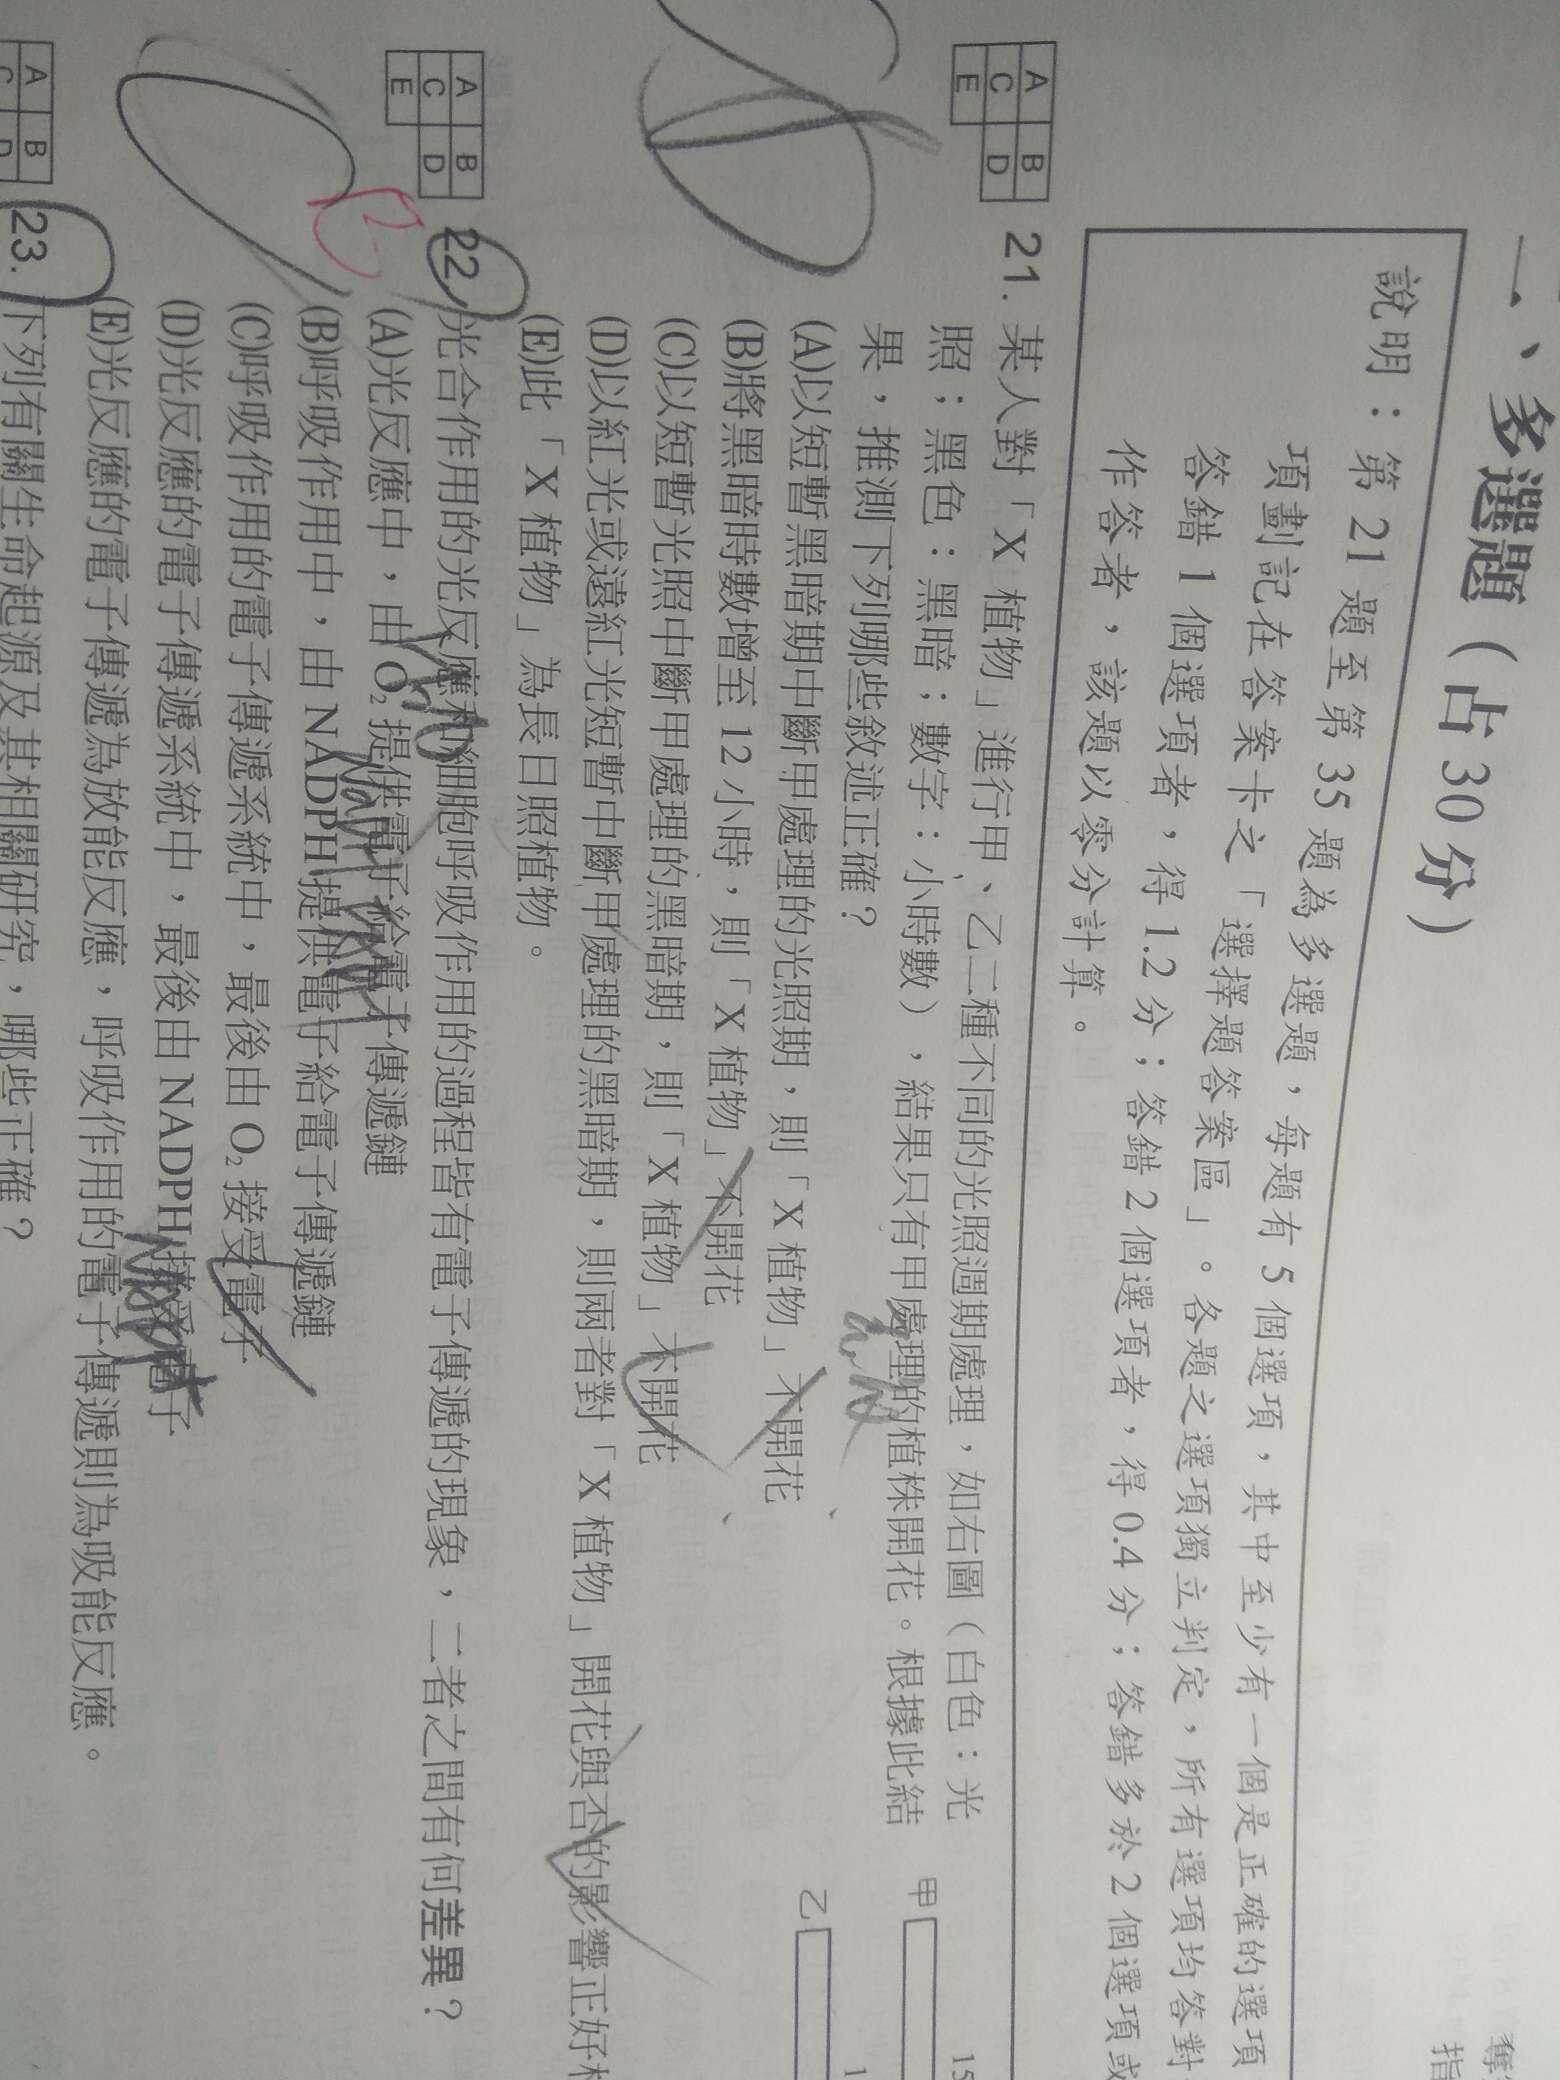 一、多選題（占 30 分）
說明：第 21 題至第 35 題為多選題，每題有 5 個選項，其中至少有一個是正確的選項
項劃記在答案卡之「選擇題答案區」。各題之選項獨立判定，所有選項均答對
答錯 1 個選項者，得 1.2 分；答錯 2 個選項者，得 0.4 分；答錯多於 2 個選項或
作答者，該題以零分計算。
A B
C D
E
21. 某人對「X 植物」進行甲、乙二種不同的光照週期處理，如右圖（白色：光
照；黑色：黑暗；數字：小時數），結果只有甲處理的植株開花。根據此結
果，推測下列哪些敘述正確？
甲
15
乙
1
(A)以短暫黑暗期中斷甲處理的光照期，則「X 植物」不開花
(B)將黑暗時數增至 12 小時，則「X 植物」不開花
(C)以短暫光照中斷甲處理的黑暗期，則「X 植物」不開花
(D)以紅光或遠紅光短暫中斷甲處理的黑暗期，則兩者對「X 植物」開花與否的影響正好
(E)此「X 植物」為長日照植物。
A B
C D
E
22. 光合作用的光反應和細胞呼吸作用的過程皆有電子傳遞的現象，二者之間有何差異？
(A)光反應中，由 O₂ 提供電子給電子傳遞鏈
(B)呼吸作用中，由 NADPH 提供電子給電子傳遞鏈
(C)呼吸作用的電子傳遞系統中，最後由 O₂ 接受電子
(D)光反應的電子傳遞系統中，最後由 NADPH 接受電子
(E)光反應的電子傳遞為放能反應，呼吸作用的電子傳遞則為吸能反應。
A B
C D
23. 下列有關生命起源及其相關研究，哪些正確？